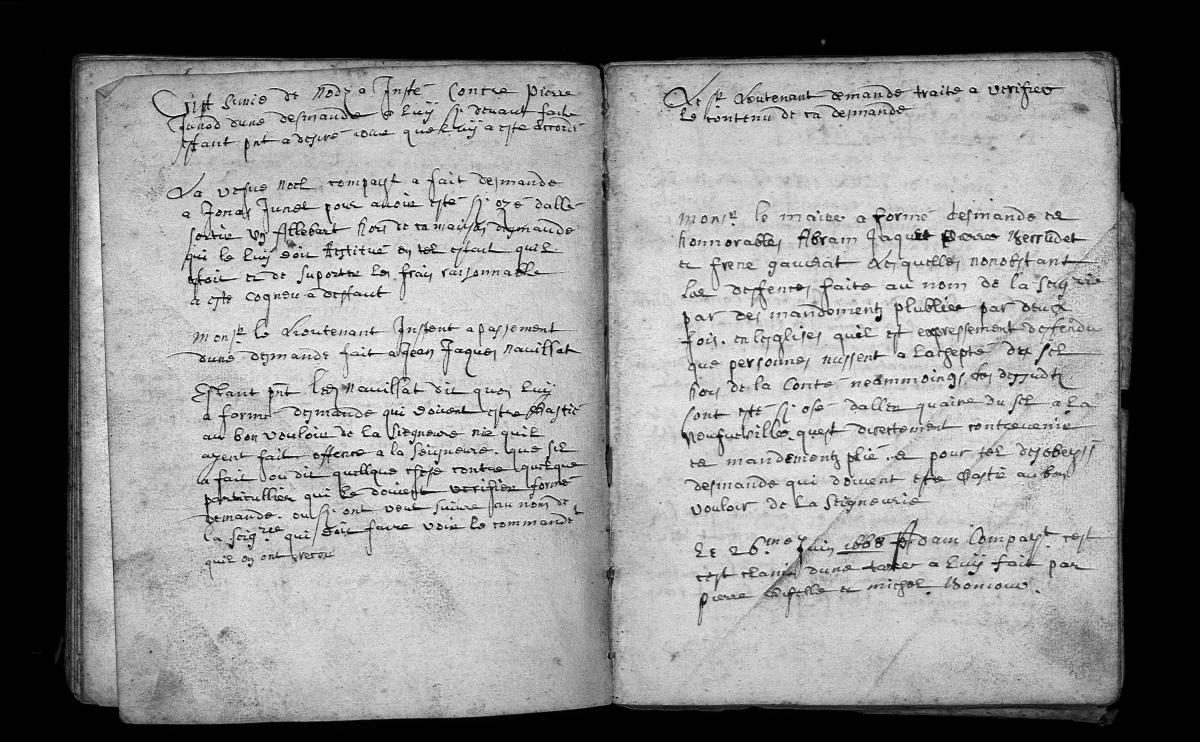 de Rodz a Insté Contre Pierre
Junod dune desmande a Luÿ sy devant faite
Estant pnt a desiré que Luÿ a esté accordé
La vefve Noel Compayt a fait desmande
a Jonas Junet pour avoir esté sy ozé dalle
sortir un Allebart hors de sa maison desmande
qui le luÿ doit Restitué en tel estast quil
estoit et de suporter les frais raisonnable
a este cogneu a deffaut
Monsr. le Lieutenant Instent a passement
dune desmande fait a Jean Jaques Navillat
Estant pnt Led Navillat dit que Luÿ
a formé desmande qui doivent estre Chastié
au bon vouloir de la Siegneure nie quil
ayent fait offence a la Seigneure. que sil
a fait ou dit quelque chose contre quelque
particullier qui le doivent verifier formé
demande. ou sy ont veut suivre au nom de
la Seigrie qui doit faire voir le commandet
quil en ont receu
Le Sr. Lieutenant demande traite a verifier
le contenu de ca desmande
Monsr. le maire a formé desmande et
honnorables Abram Jaquet Berrudet
et frene gauchat Lesquelles nonobstant
Les deffences faite au nom de la Seigrie
par des mandements plubliée par deux
fois. en lesglises quil est expressement deffendu
que personnes nussent a Lachepté du sel
hors de la Conté neammoings les dessudts
sont esté sy osé daller quaire du sel a la
Neufveville. quest directement contrevenir
et mandements plié. et pour tel desobeÿs
desmande qui doivent esté Chastié au bon
vouloir de la Seigneurie
Le 26me Juin 1668 Adam Compayt. cest
cest clamé dune taxe a Luÿ fait par
pierre et michel Bonjour.